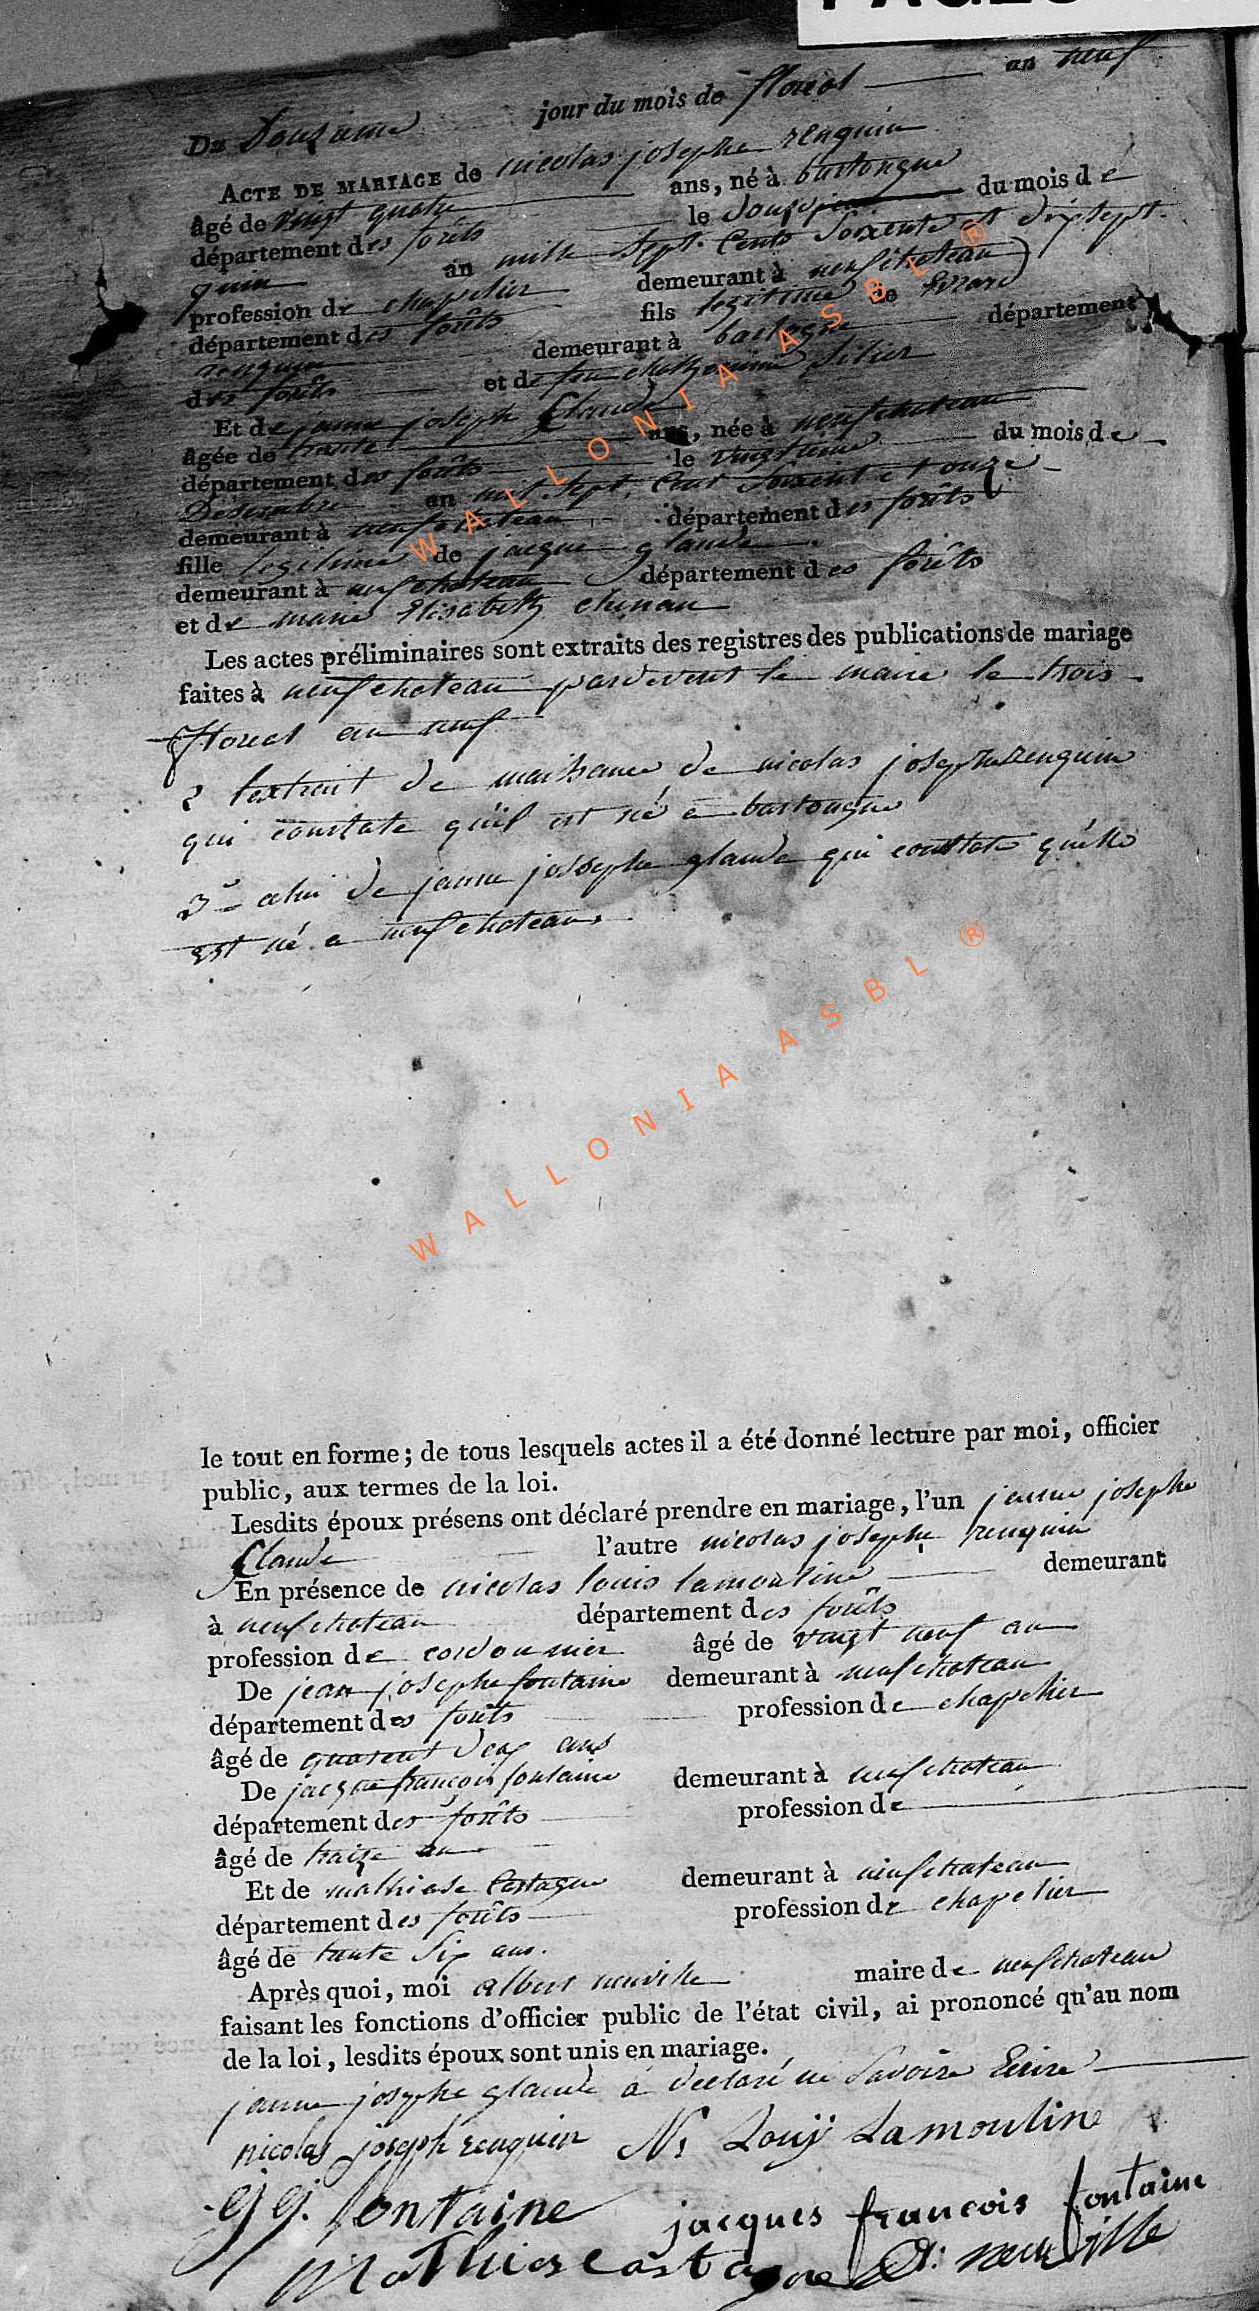 Du Douzieme jour du mois de floréal an neuf
ACTE DE MARIAGE de nicolas josephe renquin
âgé de vingt quatre ans, né à bastongne
département des forêts le douzieme du mois de
juin an mille sept cents soixente et dix sept
profession de chapelier demeurant à neufchateau
département des forêts fils legitime de
renquin demeurant à bastogne département
des forêts et de feu
Et de jeanne joseph Glaude
âgée de trente ans, née à neufchateau
département des forêts le vingtieme du mois de
Desembre an mil sept cent soixente et onze
demeurant à neufchateau département des forêts
fille legitime de jacque glaude
demeurant à neufchateau département des forêts
et de marie Elisabeth chenau
Les actes préliminaires sont extraits des registres des publications de mariage
faites à neufchateau pardevent le maire le trois
floreal an neuf
2 l'extrait de naissance de nicolas josephe renquin
qui constate qu'il est né a bastongne
3 celui de jeanne josephe glaude qui constate qu'elle
est né a neufchateau
le tout en forme; de tous lesquels actes il a été donné lecture par moi, officier
public, aux termes de la loi.
Lesdits époux présens ont déclaré prendre en mariage, l'un jeanne josephe
Glaude l'autre nicolas josephe renquin
En présence de nicolas louis lamouline demeurant
à neufchateau département des forêts
profession de cordonnier âgé de vingt neuf an
De jean josephe fontaine demeurant à neufchateau
département des forêts profession de chapelier
âgé de quarent deux ans
De jacque françois fontaine demeurant à neufchateau
département des forêts profession de
âgé de traize an
Et de mathias Castagne demeurant à neufchateau
département des forêts profession de chapelier
âgé de trente six ans.
Après quoi, moi albert neuville maire de neufchateau
faisant les fonctions d'officier public de l'état civil, ai prononcé qu'au nom
de la loi, lesdits époux sont unis en mariage.
jeanne josephe glaude a declaré ne savoire Ecrire
nicolas joseph renquin Ns Louÿ Lamouline
gg. fontaine jacques francois fontaine
Mathias castagne A: neuville
WALLONIA ASBL ®
WALLONIA ASBL ®